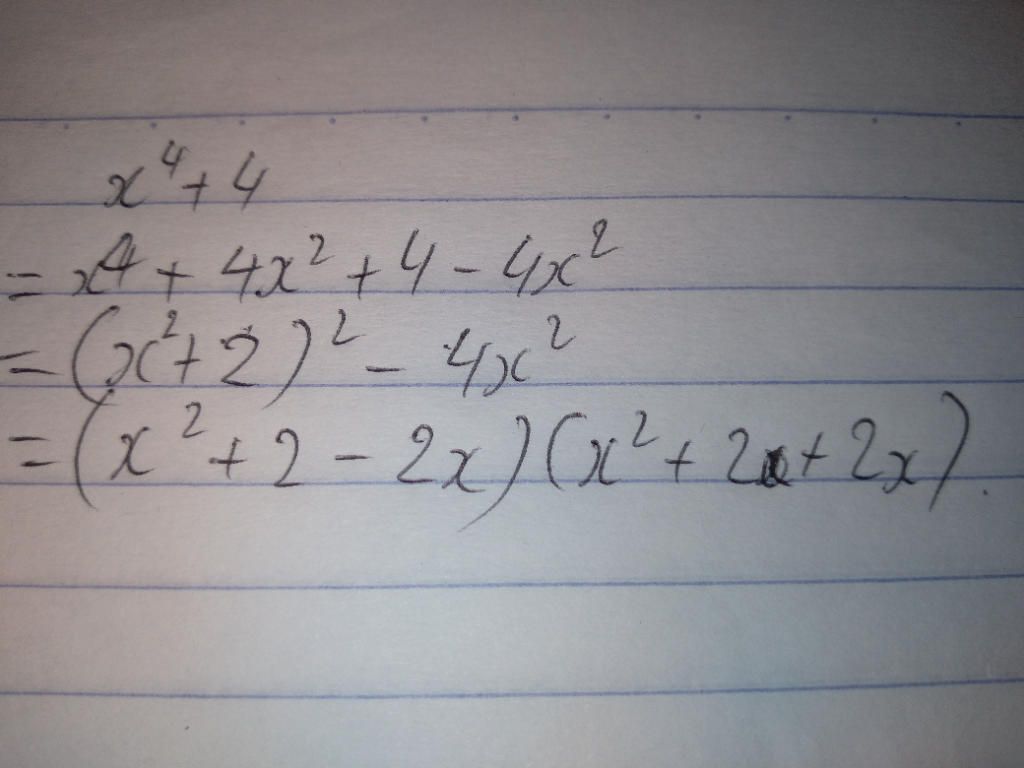 x⁴ + 4
= x⁴ + 4x² + 4 - 4x²
= (x² + 2)² - 4x²
= (x² + 2 - 2x)(x² + 2 + 2x).